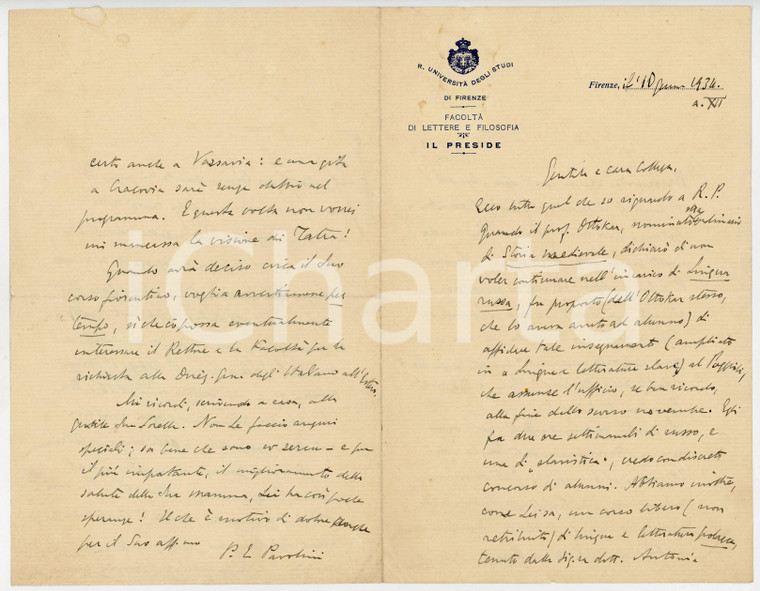 R. UNIVERSITÀ DEGLI STUDI
DI FIRENZE
FACOLTÀ
DI LETTERE E FILOSOFIA
IL PRESIDE
Firenze, il 10 1934.
a. XII
Gentile e cara Collega,
Ecco tutto quel che so riguardo a R. P.
Quando il prof. Ottokar, nominato
di Storia medievale, dichiarò di non
voler continuare nell'incarico di Lingua
russa, fu proposto (dall'Ottokar stesso,
che lo aveva avuto ad alunno) di
affidare tale insegnamento (ampliato
in a Lingua e letterature slave) al Poggioli,
che assunse l'ufficio, se ben ricordo,
alla fine dello scorso novembre. Egli
fa due ore settimanali di russo, e
una di "slavistica", credo con discreto
concorso di alunni. Abbiamo inoltre,
come Lei sa, un corso libero (non
retribuito) di lingua e letteratura polacca,
tenuto dalla Sig.na dott. Antonia
certo anche a Varsavia: e una gita
a Cracovia sarà senza dubbio nel
programma. E questa volta non vorrei
mi mancasse la visione dei Tatra!
Quando avrà deciso circa il Suo
corso fiorentino, voglia avvertirmene per
tempo, sì che io possa eventualmente
interessare il Rettore e la Facoltà per la
richiesta alla Direz. Gen. degli Italiani all'Estero.
Mi ricordi, scrivendo a casa, alla
gentile Sua Sorella. Non Le faccio auguri
speciali; sa bene che sono ex – e pur
il più importante, il miglioramento della
salute della Sua mamma, Lei ha così poche
speranze! Il che è motivo di dolore anche
per il Suo affmo
P. E. Pavolini
iCharta